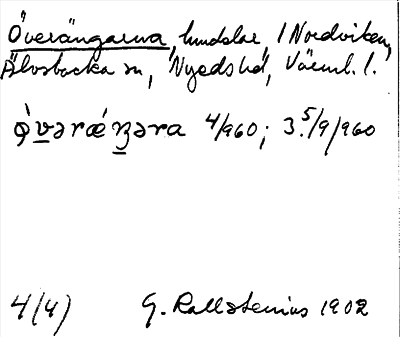 Överängarna, hundslar, i Nordviken,
Älvsbacka sn, Nyeds hd, Värml. l.
ǿvərǽŋəra 4/960; 3.5/9/960
4(4) G. Kallstenius 1902